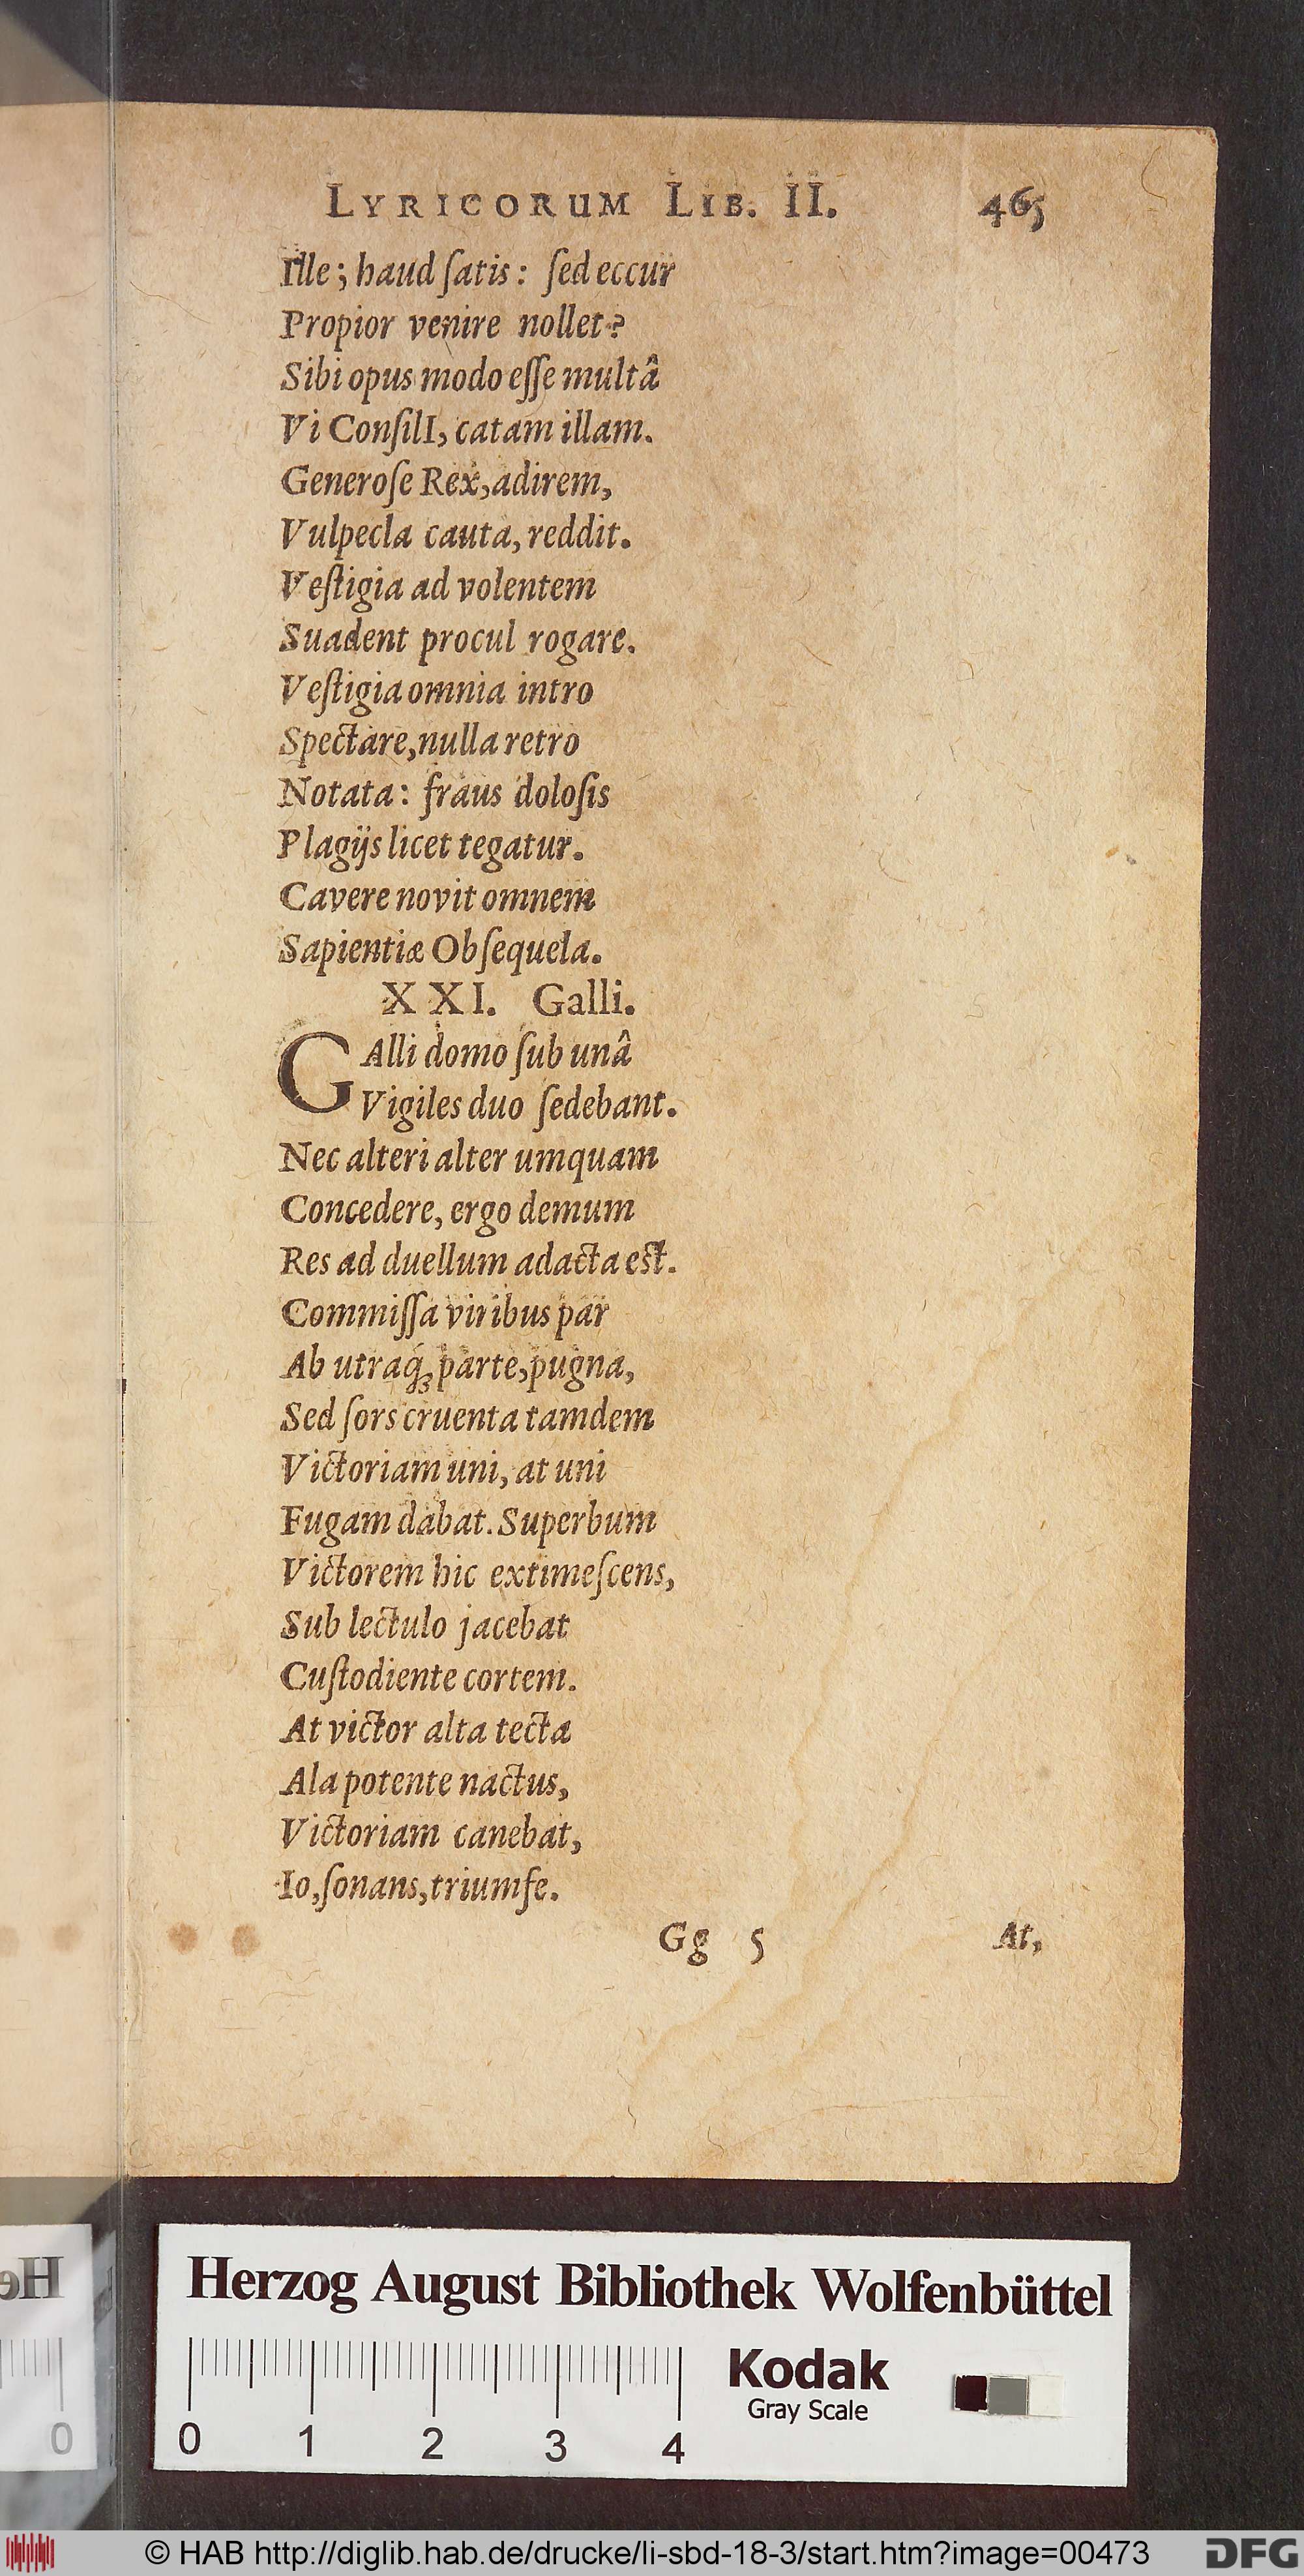 LYRICORUM LIB. II. 465
Ille; haud ſatis: ſed eccur
Propior venire nollet?
Sibi opus modo eſſe multâ
Vi ConſilI, catam illam.
Generoſe Rex, adirem,
Vulpecla cauta, reddit.
Veſtigia ad volentem
Suadent procul rogare.
Veſtigia omnia intro
Spectare, nulla retro
Notata: fraus doloſis
Plagijs licet tegatur.
Cavere novit omnem
Sapientiæ Obſequela.
XXI. Galli.
GAlli domo ſub unâ
Vigiles duo ſedebant.
Nec alteri alter umquam
Concedere, ergo demum
Res ad duellum adacta eſt.
Commiſſa viribus par
Ab utraq́ꝫ parte, pugna,
Sed ſors cruenta tamdem
Victoriam uni, at uni
Fugam dabat. Superbum
Victorem hic extimeſcens,
Sub lectulo jacebat
Cuſtodiente cortem.
At victor alta tecta
Ala potente nactus,
Victoriam canebat,
Io, ſonans, triumfe.
Gg 5 At,
Herzog August Bibliothek Wolfenbüttel
Kodak
Gray Scale
0 1 2 3 4
He
0
© HAB http://diglib.hab.de/drucke/li-sbd-18-3/start.htm?image=00473
DFG